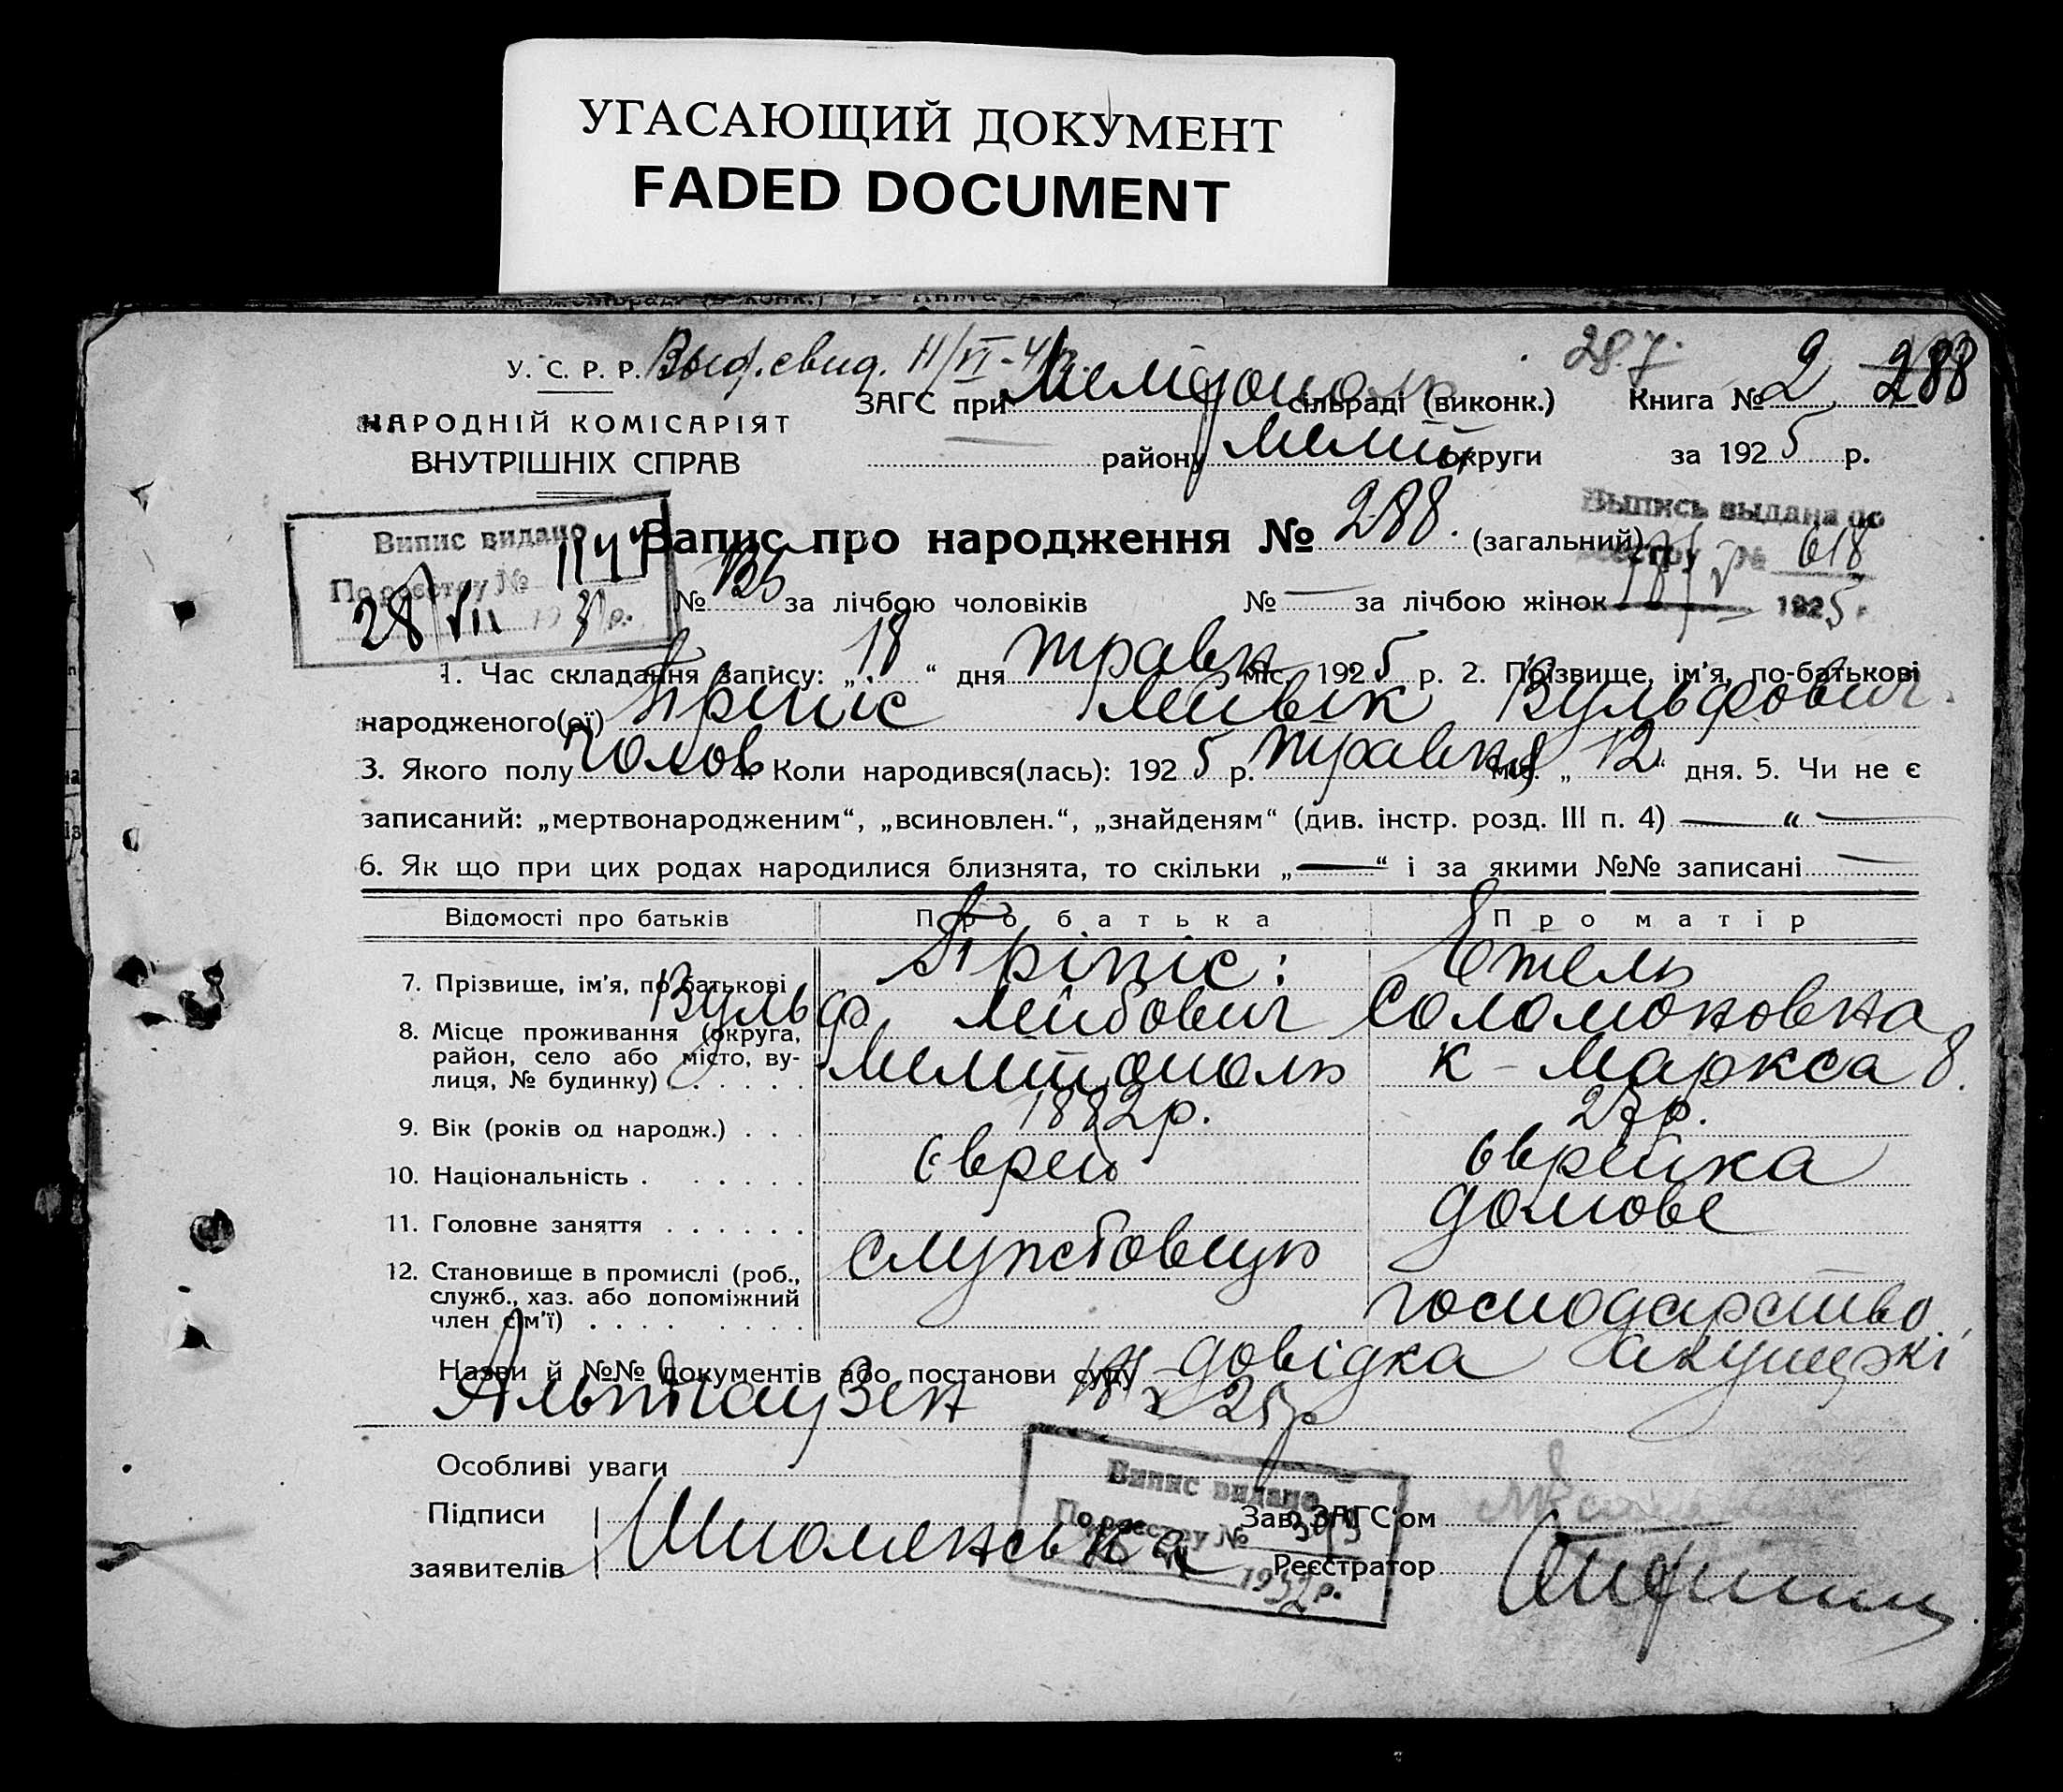 УГАСАЮЩИЙ ДОКУМЕНТ
FADED DOCUMENT
У. С. Р. Р. Выд. свид.
287. 288
НАРОДНІЙ КОМІСАРІЯТ
ВНУТРІШНІХ СПРАВ
ЗАГС при Мелітополь сільраді (виконк.) Книга № 2
району Меліт округи за 1925 р.
Випис видано
По реєстру № 1144
28/VII 193 р.
Выпись выдана по
реестру № 618
18/V 1925 г.
Запис про народження № 288. (загальний)
№ 135 за лічбою чоловіків № — за лічбою жінок
1. Час складання запису: „18“ дня травн міс. 1925 р. 2. Прізвище, ім'я, по-батькові
народженого(ої) Лейвік Вульфович.
3. Якого полу чолов 4. Коли народився(лась): 1925 р. травня міс. „12“ дня. 5. Чи не є
записаний: „мертвонародженим“, „всиновлен.“, „знайденям“ (див. інстр. розд. III п. 4) — “ —
6. Як що при цих родах народилися близнята, то скільки „—“ і за якими №№ записані —
Відомості про батьків Про батька Про матір
7. Прізвище, ім'я, по батькові Вульф Лейбович Етель Соломоновна
8. Місце проживання (округа,
район, село або місто, ву-
лиця, № будинку) Мелітополь К-Маркса 8.
9. Вік (років од народж.) . . . 1882 р. 27 р.
10. Національність . . . . . . Єврей Єврейка
11. Головне заняття . . . . . . службовець домове
12. Становище в промислі (роб.,
служб., хаз. або допоміжний
член сім'ї) . . . . . . . . господарство
Назви й №№ документів або постанови суду довідка акушеркі
Альтгаузен 25 р
Особливі уваги
Випис видано
По реєстру №
1932 р.
Підписи
заявителів Шполянська
Зав. ЗАГС'ом
Реєстратор